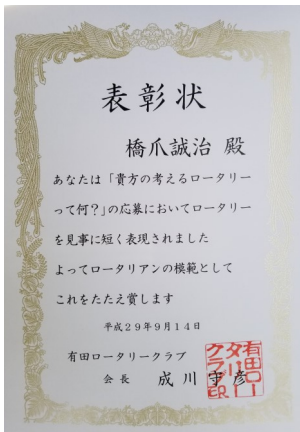 表彰状
橋爪誠治 殿
あなたは「貴方の考えるロータリー
って何？」の応募においてロータリー
を見事に短く表現されました
よってロータリアンの模範として
これをたたえ賞します
平成29年9月14日
有田ロータリークラブ
会長 成川守彦
有田ロー
タリー
クラブ